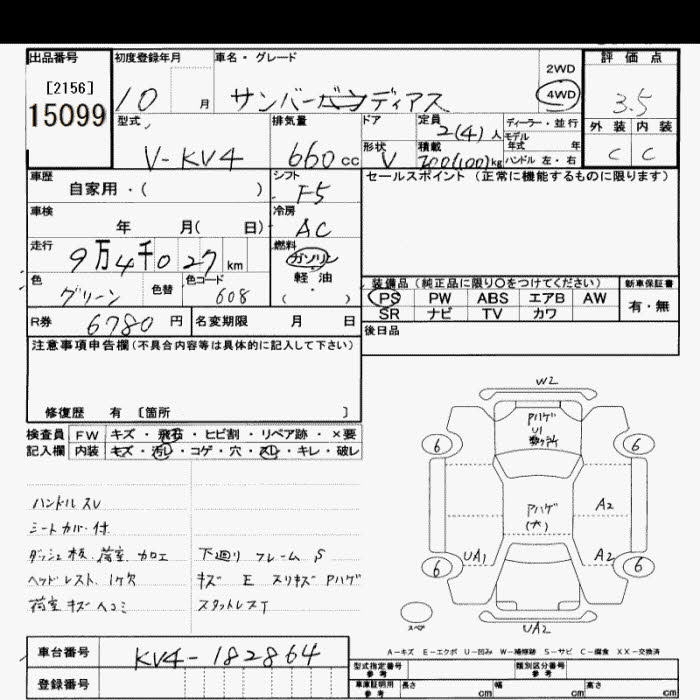 出品番号 初度登録年月 車名・グレード 評価点
[2156] 2WD
15099 10 月 サンバーバンディアス 4WD 3.5
型式 排気量 ドア 定員 2(4)人 ディーラー・並行 外装 内装
モデル年式 年
V-KV4 660cc 形状 V 積載 200(100)kg ハンドル 左・右 C C
車歴 シフト セールスポイント (正常に機能するものに限ります)
自家用・( ) F5
車検 冷房
年 月( 日) AC
走行 燃料
9万4千027km ガソリン
色 色替 色コード 軽・油 装備品 (純正品に限り〇をつけてください) 新車保証書
グリーン 608 ( ) PS PW ABS エアB AW 有・無
SR ナビ TV カワ
R券 6780円 名変期限 月 日 後日品
注意事項申告欄(不具合内容等は具体的に記入して下さい)
修復歴 有 〔箇所 〕
検査員 FW キズ・飛石・ヒビ割・リペア跡・×要
記入欄 内装 キズ・汚レ・コゲ・穴・スレ・キレ・破レ
W2
Pハゲ
U1
数ヶ所
6 6
Pハゲ
(大)
A2
UA1 A2
6 6
スペア
UA2
ハンドル スレ
シートカバー付
ダッシュ板、荷室 加工 下廻り フレーム S
ヘッドレスト、1ケ欠 キズ E スリキズ Pハゲ
荷室 キズ ヘコミ スタットレスT
A-キズ E-エクボ U-凹み W-補修跡 S-サビ C-腐食 XX-交換済
車台番号 KV4-182864
登録番号
型式指定番号 参考 類別区分番号 参考
車庫証明用 参考 長さ cm 幅 cm 高さ cm